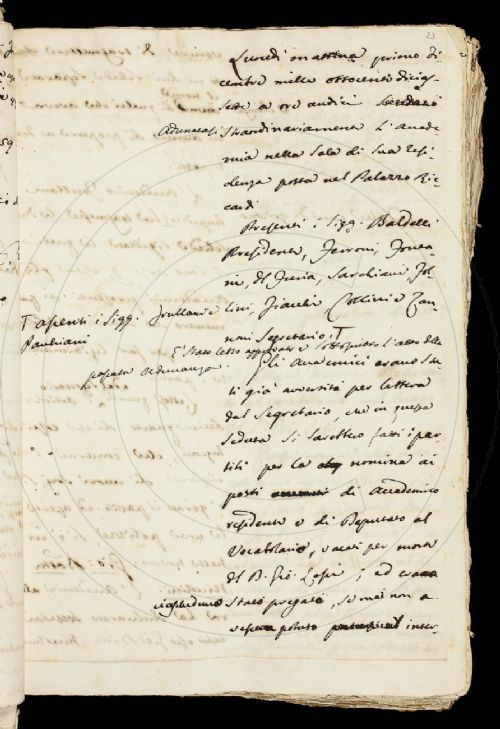 23
Lunedì mattina primo Di-
cembre mille ottocento dicias-
sette a ore undici
Adunatasi straordinariamente l'Accade-
mia nella Sala di sua resi-
denza posta nel Palazzo Ric-
cardi
Presenti i Sigg. Baldelli
Presidente, Ferroni, Fonta-
ni, Del Furia, Sarchiani, Fol-
lini, Fiacchi, Collini e Zan-
noni Segretario; T
T assenti i Sigg. Frullani e
Pauliani
È stato letto approvato e sottoscritto l'atto della
passata Adunanza.
Gli Accademici erano sta-
ti già avvertiti per lettera
dal Segretario, che in questa
seduta si sarebbero fatti i par-
titi per la nomina ai
posti di Accademico
residente e di Deputato al
Vocabolario, vacati per morte
del B. Gio. Lessi; ed
stato pregato, se mai non a-
potuto inter-